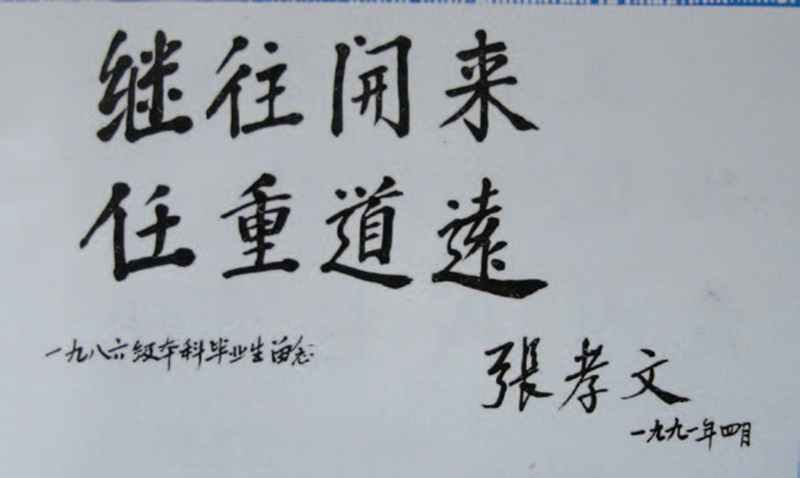 继往开来
任重道遠
一九八六级本科毕业生留念
張孝文
一九九一年四月